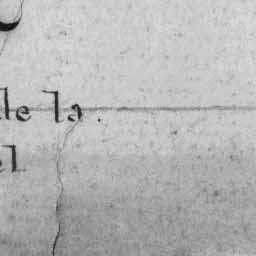 de la.
el